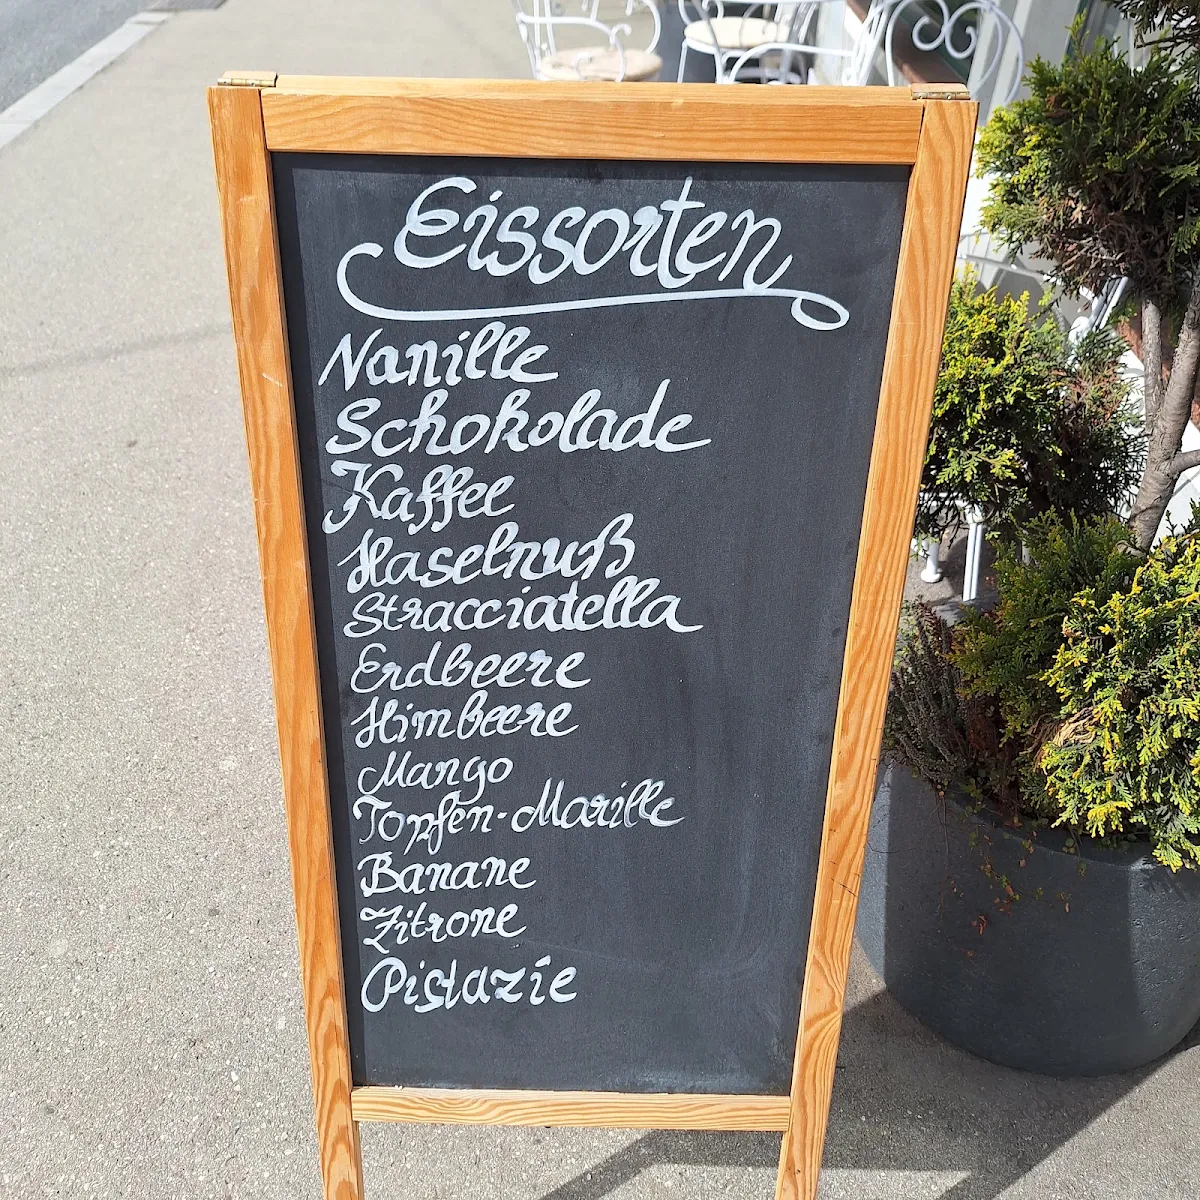 Eissorten
Vanille
Schokolade
Kaffee
Haselnuß
Stracciatella
Erdbeere
Himbeere
Mango
Topfen-Marille
Banane
Zitrone
Pistazie